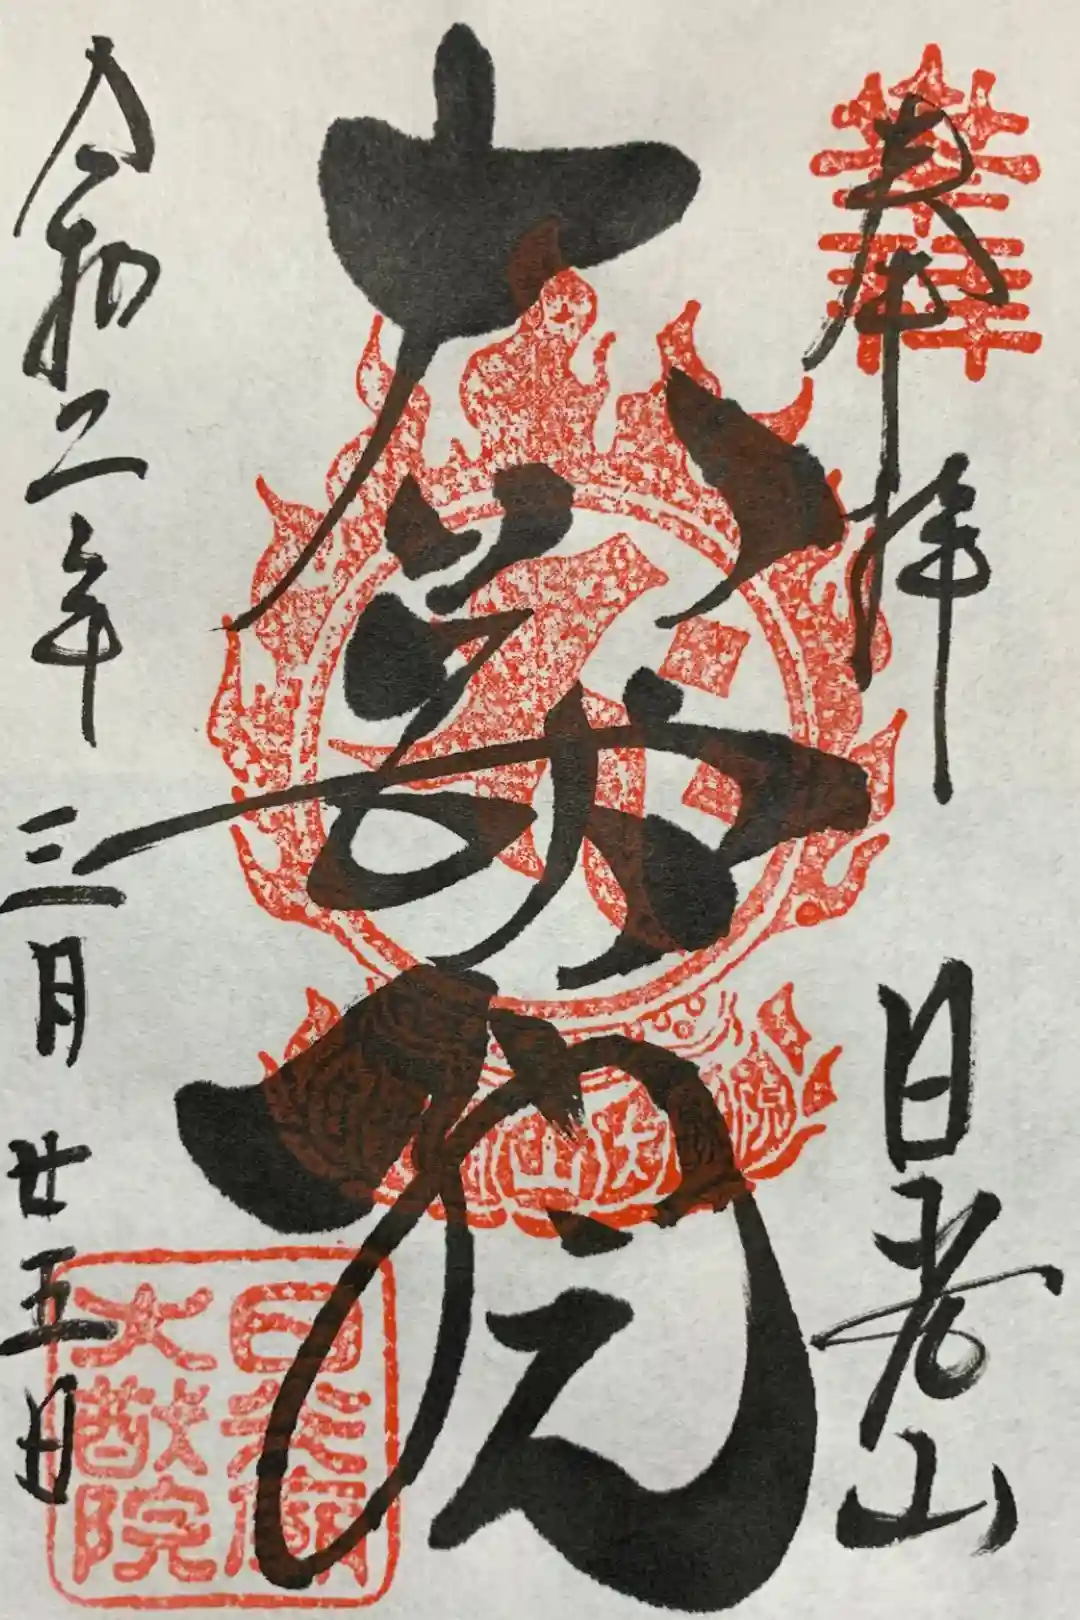 奉拝
日光山
大猷院
令和二年三月廿五日
日光廟
大猷院